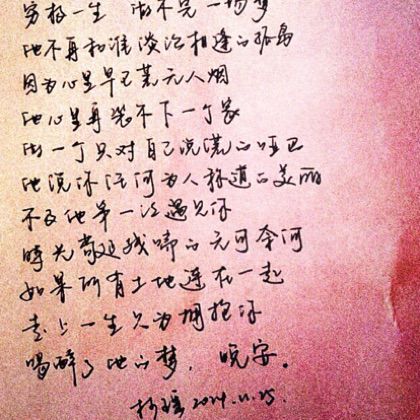 穷极一生 做不完一场梦
他不再和谁谈论相逢的孤岛
因为心里早已荒无人烟
他心里再装不下一个家
做一个只对自己说谎的哑巴
他说你任何为人称道的美丽
不及他第一次遇见你
时光苟延残喘的无可奈何
如果所有土地连在一起
走上一生只为拥抱你
喝醉了他的梦，晚安。
2014.11.25